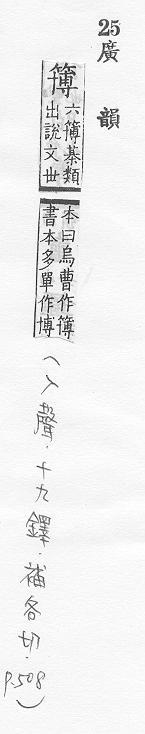 25
廣韻
簙
六簙棊類
出說文世
本曰烏曹作簙
書本多單作博
(入聲.十九鐸.補各切.p.508)